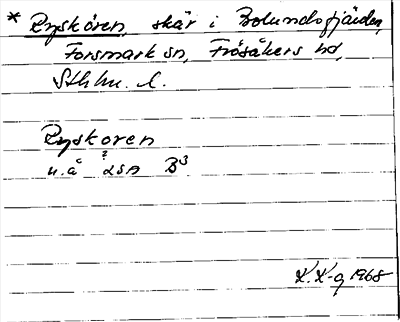 * Ryskören, skär i Bolundsfjärden,
Forsmark sn, Frösåkers hd,
Sthlms. l.
Ryskoren
u.å LSA B3
K.K-g 1968